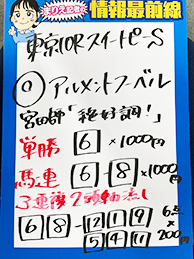 まりえ記者の
情報最前線
東京10R スイートピーS
◎ アルメントフーベル
宮田師「絶好調!」
単勝 6 ×1000円
馬連 6-8 ×1000円
3連複2頭軸流し
6 8 - 12 1 9 6点
5 4 11 ×200円